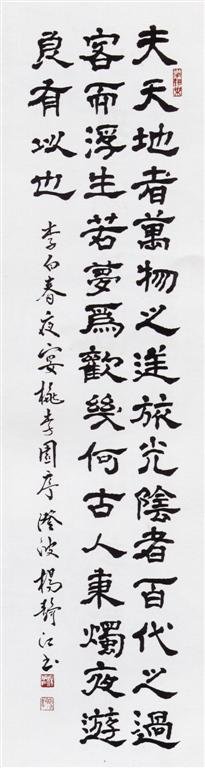 夫天地者萬物之逆旅光陰者百代之過
客而浮生若夢爲歡幾何古人秉燭夜遊
良有以也
李白春夜宴桃李園序 澄波楊靜江书